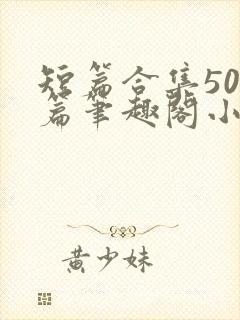 短篇合集50
篇笔趣阁小
黄少妹